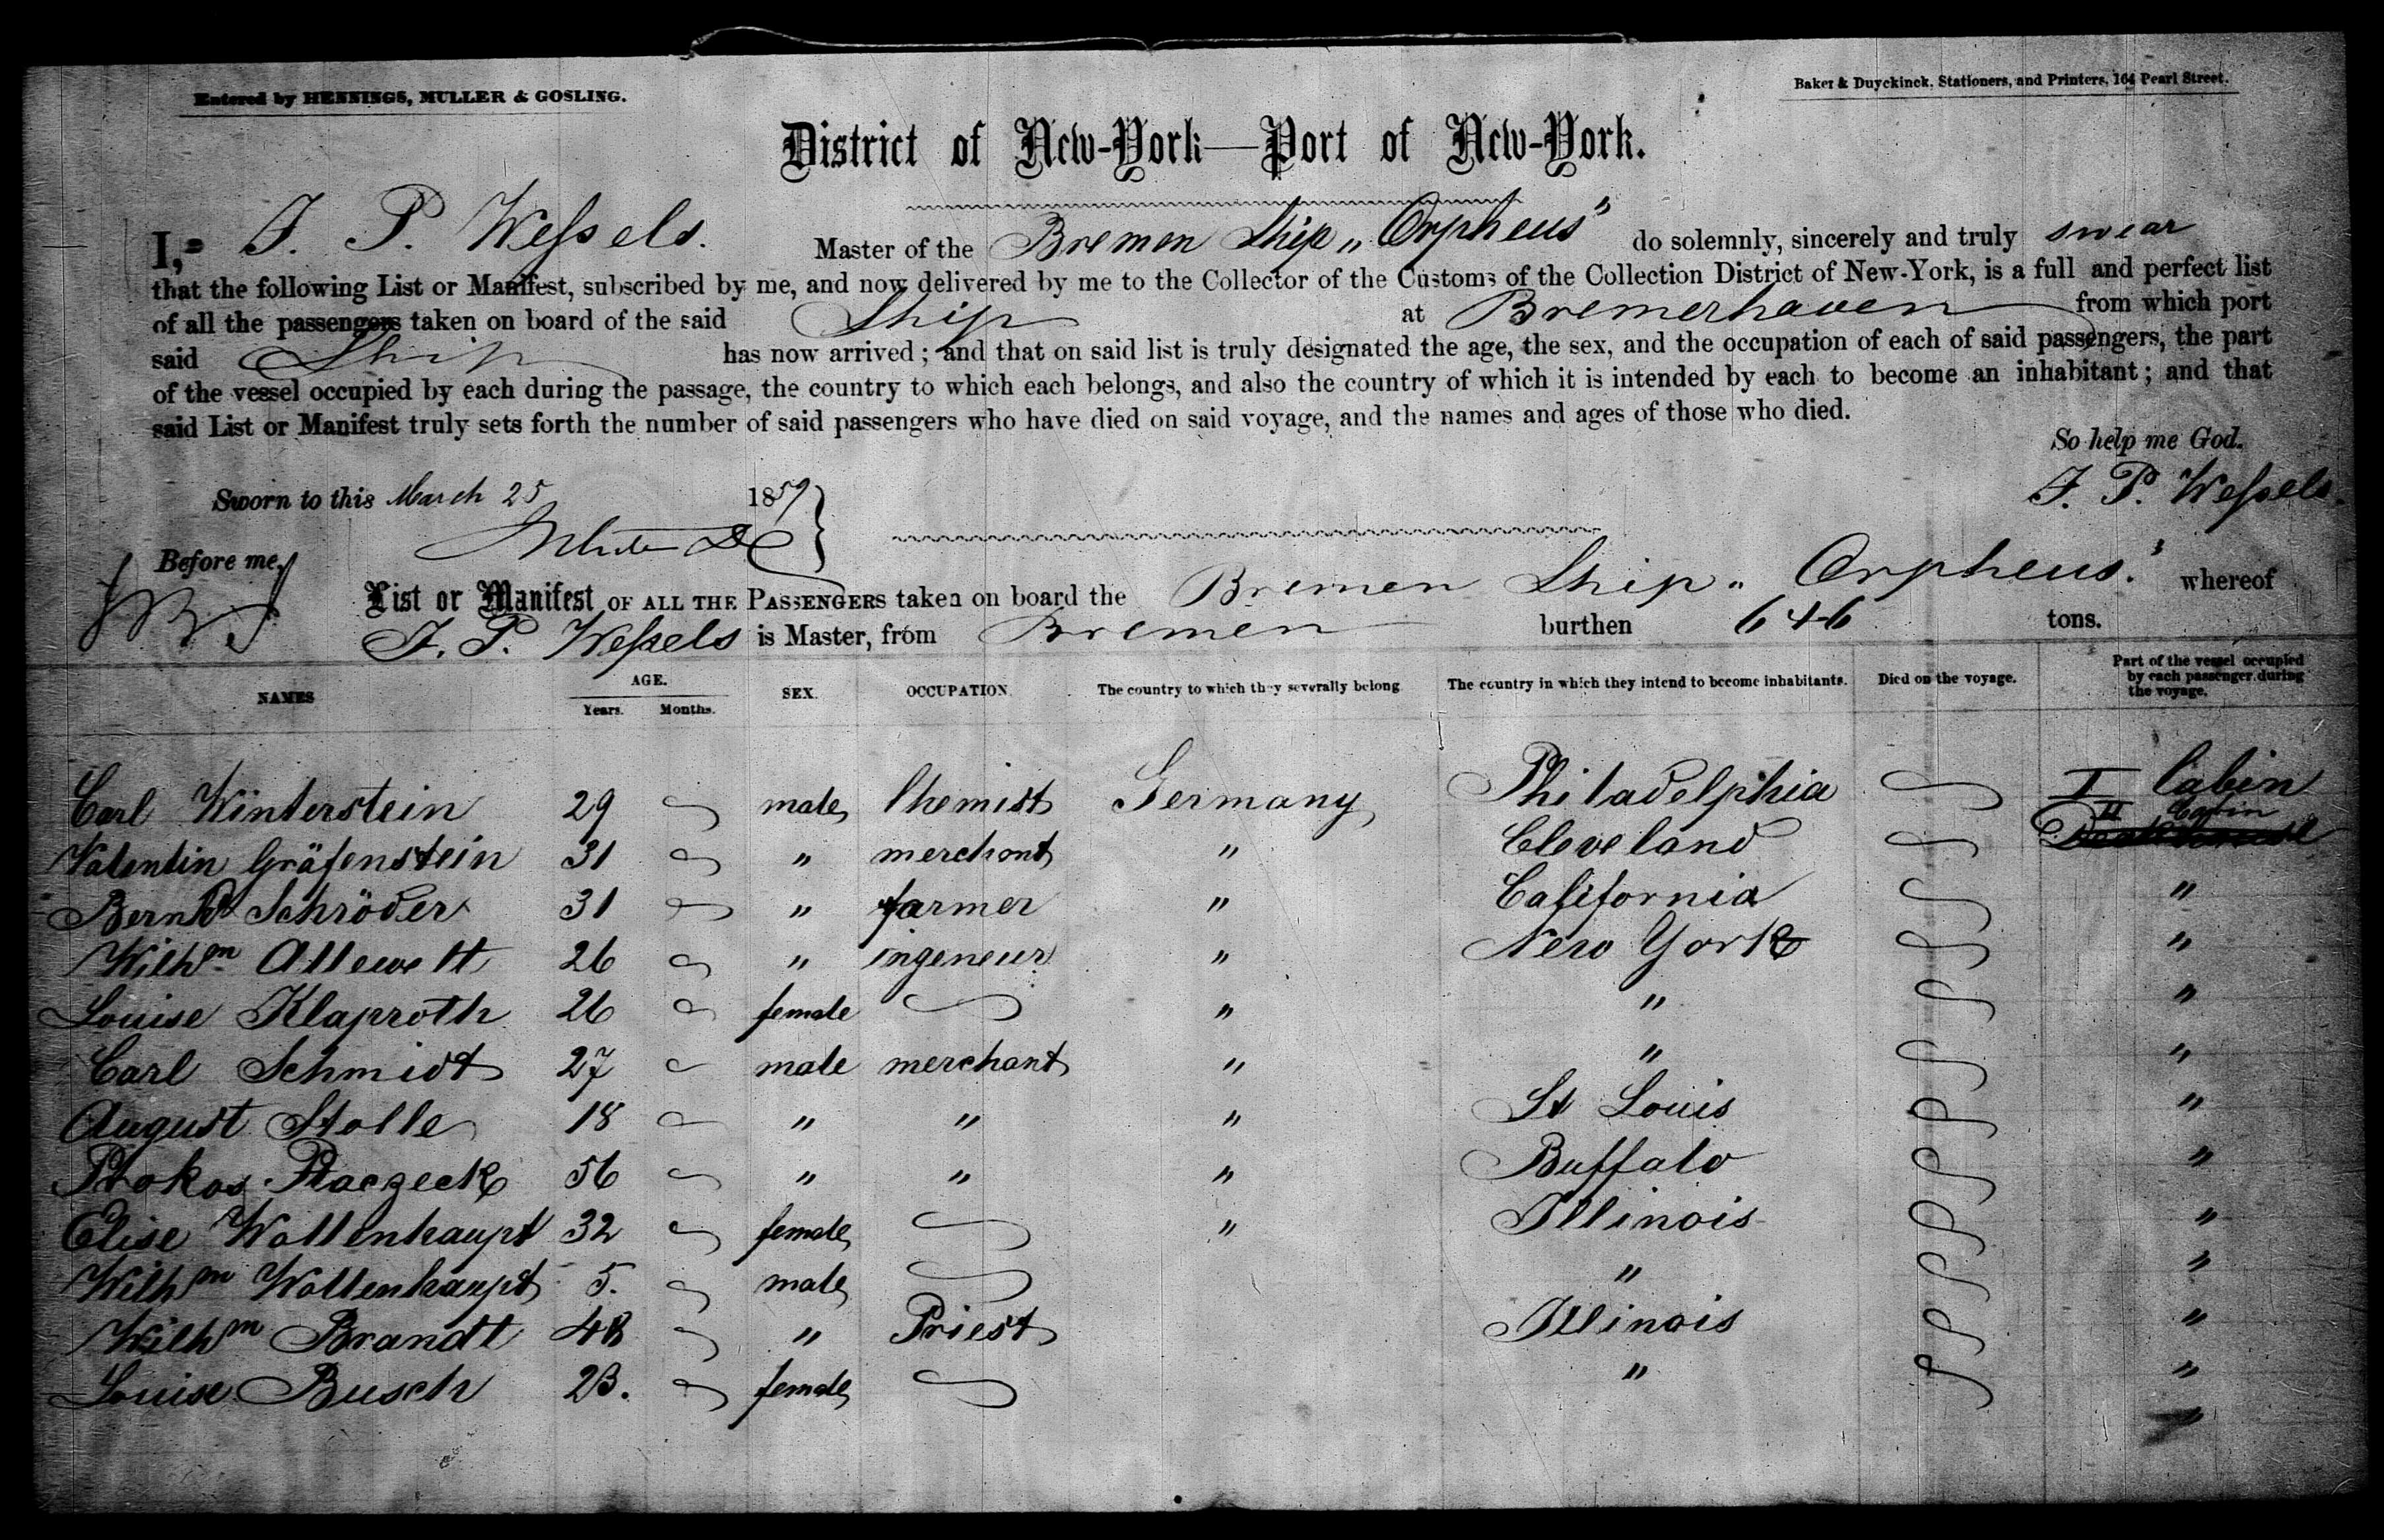 Entered by HENNINGS, MULLER & GOSLING.
Baker & Duyckinck, Stationers, and Printers, 164 Pearl Street.
District of New-York—Port of New-York.
I, J. P. Wessels. Master of the Bremen Ship „Orpheus" do solemnly, sincerely and truly swear
that the following List or Manifest, subscribed by me, and now delivered by me to the Collector of the Customs of the Collection District of New-York, is a full and perfect list
of all the passengers taken on board of the said Ship at Bremerhaven from which port
said Ship has now arrived; and that on said list is truly designated the age, the sex, and the occupation of each of said passengers, the part
of the vessel occupied by each during the passage, the country to which each belongs, and also the country of which it is intended by each to become an inhabitant; and that
said List or Manifest truly sets forth the number of said passengers who have died on said voyage, and the names and ages of those who died.
So help me God.
Sworn to this March 25 1859
J. P. Wessels.
Before me,
List or Manifest OF ALL THE PASSENGERS taken on board the Bremen Ship „Orpheus" whereof
J. P. Wessels is Master, from Bremen burthen 646 tons.
NAMES AGE. Years. Months. SEX. OCCUPATION. The country to which they severally belong The country in which they intend to become inhabitants. Died on the voyage. Part of the vessel occupied by each passenger during the voyage.
Carl Winterstein 29 male Chemist Germany Philadelphia I Cabin
Valentin Gräfenstein 31 " merchant " Cleveland II Cabin
Bernhd Schröder 31 " farmer " California "
Wilhm Allewelt 26 " ingeneur " New York "
Louise Klaproth 26 female " " "
Carl Schmidt 27 male merchant " " "
August Stolle 18 " " " St Louis "
Prokos Placzeck 56 " " " Buffalo "
Elise Wollenhaupt 32 female " Illinois "
Wilhm Wollenhaupt 5. male " "
Wilhm Brandt 48 " Priest Illinois "
Louise Busch 23. female " "
"